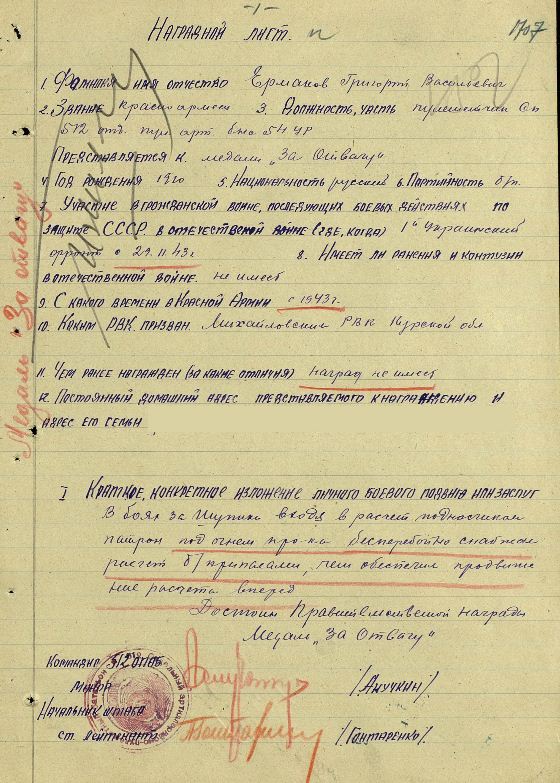 -1-
Наградной лист.
1707
1. Фамилия имя отчество Ермаков Григорий Васильевич
2. Звание Красноармеец 3. Должность, часть пулеметчик
512 отд. пул. арт. б-на 54 УР
Представляется к медали "За Отвагу"
4. Год рождения 1920 5. Национальность русский 6. Партийность б/п.
7. Участие в гражданской войне, последующих боевых действиях по
защите СССР в отечественной войне (где, когда) 1й Украинский
фронт с 29.11.43г. 8. Имеет ли ранения и контузии
в отечественной войне. не имеет
9. С какого времени в Красной Армии с 1943г.
10. Каким РВК призван. Михайловским РВК Курской обл
11. Чем ранее награжден (за какие отличия) наград не имеет
12. Постоянный домашний адрес представляемого к награждению и
адрес его семьи
I Краткое, конкретное изложение личного боевого подвига или заслуг
В боях за Шупики входя в расчет подносчиком
патрон под огнем пр-ка бесперебойно снабжал
расчет б/припасами, чем обеспечил продвиже
ние расчета вперед
Достоин Правительственной награды
Медаль "За Отвагу"
Командир 512 опаб
Майор /Анучкин/
Начальник штаба
ст. лейтенант /Гонтаренко/
Медаль "За отвагу"